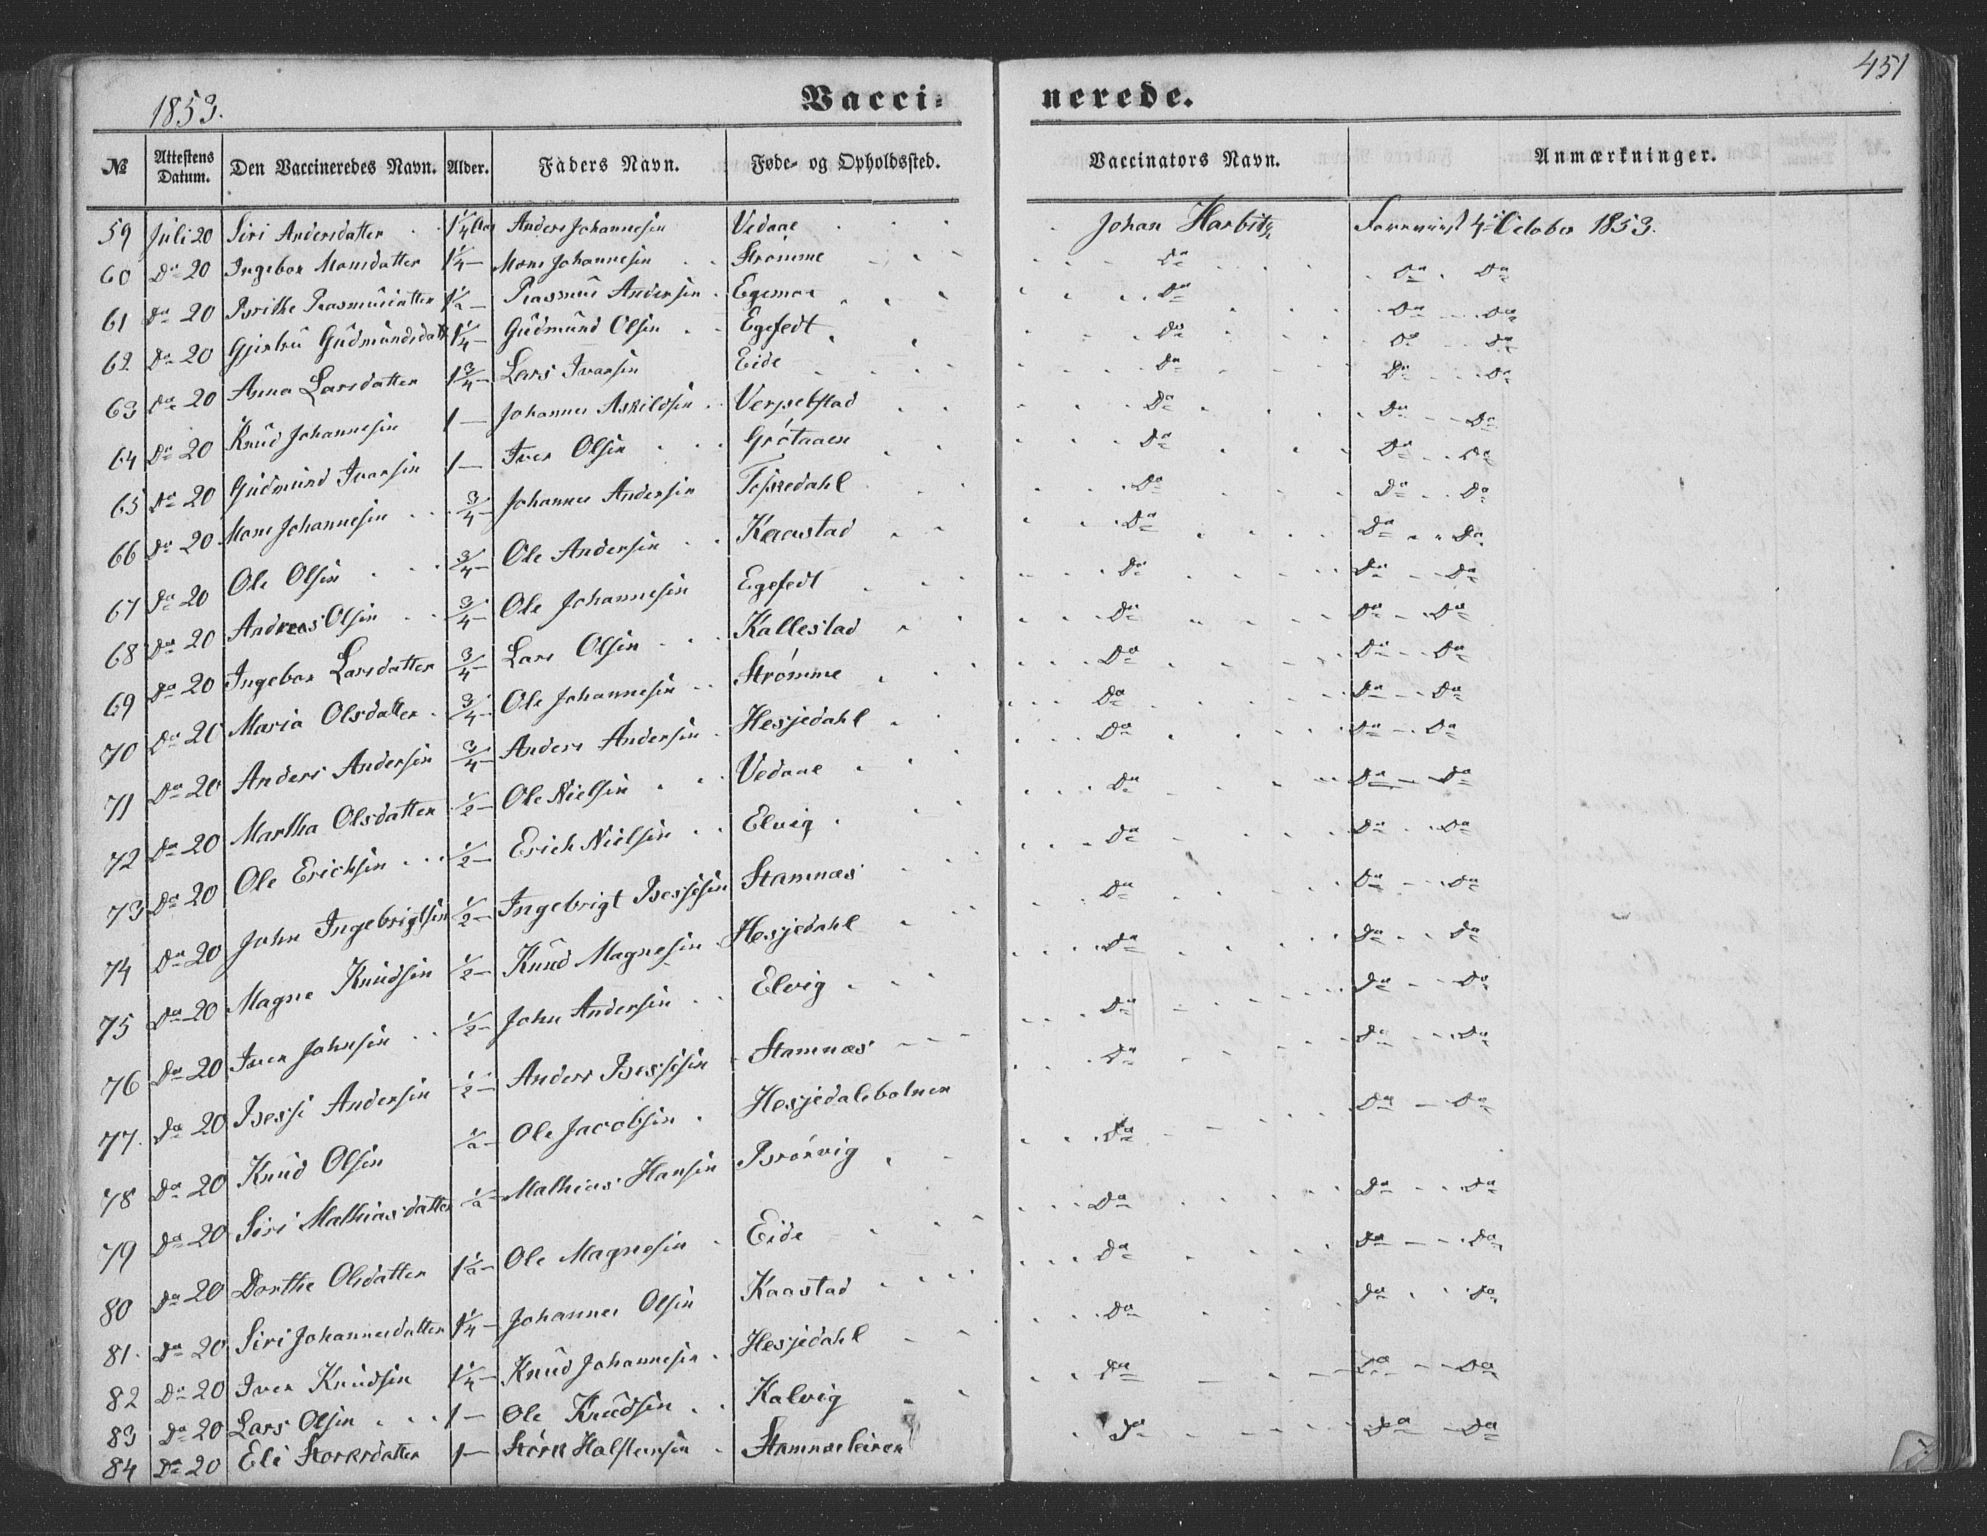 451
1853.
Vacci- nerede.
№ Attestens Datum. Den Vaccineredes Navn. Alder. Faders Navn. Føde- og Opholdssted. Vaccinators Navn. Anmærkninger.
59 Juli 20 Siri Andersdatter 1 1/4 Aar Anders Johannesen Vedaae Johan Harbitz 4 October 1853.
60 Da 20 Ingebor Monsdatter 1 1/4 — Mons Johannesen Strømme Da Da Da
61 Da 20 Brithe Rasmusdatter 1 1/2 — Rasmus Andersen Egemoe Da Da Da
62 Da 20 Gjertrü Güdmündsdatt 1 1/4 — Güdmünd Olsen Egefedt Da Da Da
63 Da 20 Anna Larsdatter 1 3/4 — Lars Ivarsen Eide Da Da Da
64 Da 20 Knüd Johannesen 1 — Johannes Askildsen Da Da Da
65 Da 20 Güdmünd Ivarsen 1 — Iver Olsen Grótaaen Da Da Da
66 Da 20 Mons Johannesen 3/4 — Johannes Andersen Tessedahl Da Da Da
67 Da 20 Ole Olsen 3/4 — Ole Andersen Kaastad Da Da Da
68 Da 20 Andreas Olsen 3/4 — Ole Johannesen Egefedt Da Da Da
69 Da 20 Ingebor Larsdatter 3/4 — Lars Olsen Kallestad Da Da Da
70 Da 20 Maria Olsdatter 3/4 Ole Johannesen Strómme Da Da Da
71 Da 20 Anders Andersen 3/4 — Anders Andersen Hesjedahl Da Da Da
72 Da 20 Martha Olsdatter 1/2 — Ole Nielsen Vedaae Da Da Da
73 Da 20 Ole Erichsen 1/2 — Erich Nielsen Elvig Da Da Da
74 Da 20 John Ingebrigtsen 1/2 — Ingebrigt Bessesen Stamnæs Da Da Da
75 Da 20 Magne Knüdsen 1/2 — Knüd Magnesen Hesjedahl Da Da Da
76 Da 20 Iver Johnsen 1/2 — John Andersen Elvig Da Da Da
77. Da 20 Besse Andersen 1/2 — Anders Bessesen Stamnæs Da Da Da
78 Da 20 Knüd Olsen 1/2 — Ole Jacobsen Hesjedalsbotnen Da Da Da
79 Da 20 Siri Mathiasdatter 1/2 — Mathias Hansen Brórvig Da Da Da
80 Da 20 Dorthe Olsdatter 1 1/2 — Ole Magnesen Eide Da Da Da
81. Da 20 Siri Johannesdatter 1 1/4 — Johannes Olsen Kaastad Da Da Da
82 Da 20 Iver Knüdsen 1 1/4 — Knüd Johannesen Hesjedahl Da Da Da
83 Da 20 Lars Olsen 1 — Ole Knüdsen Kalvig Da Da Da
84 Da 20 Eli Storksdatter 1 — Stórk Halstensen Stamnæsleiren